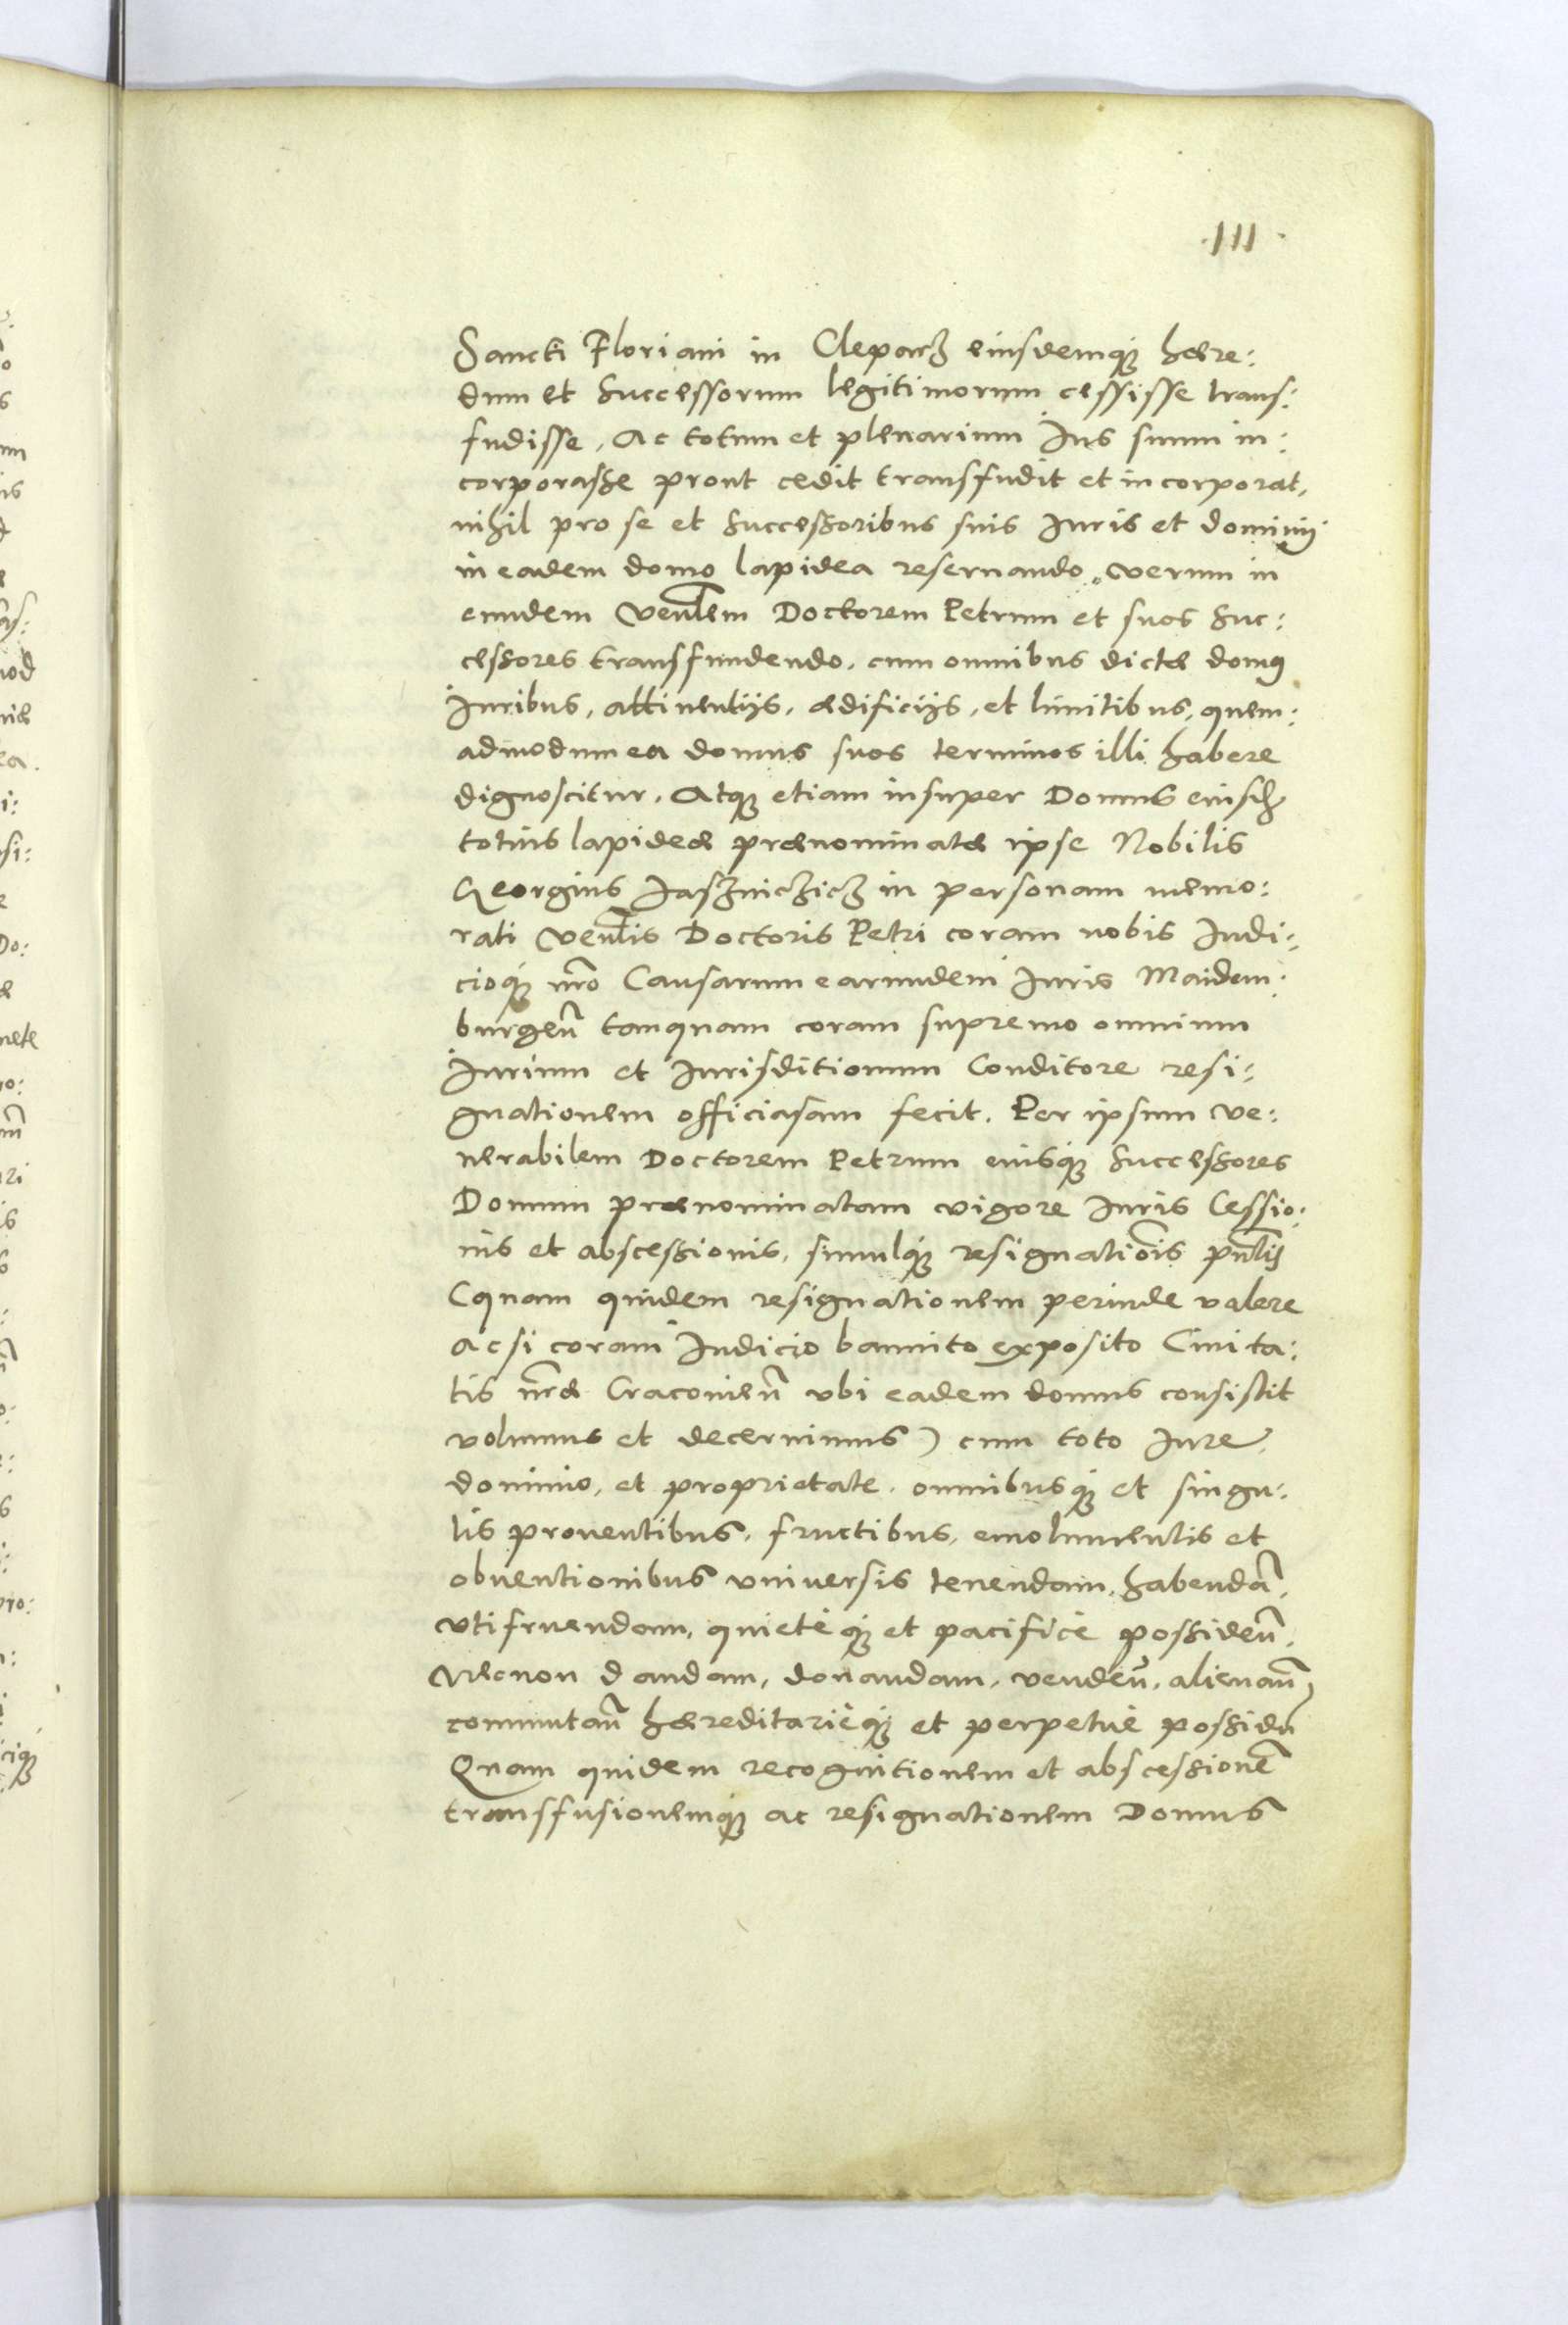 ·111·
Sancti Floriani in Cleparz eiusdemq3 hære:
dum et Successorum legitimorum cessisse trans:
fudisse, Ac totum et plenarium Ius suum in:
corporasse prout cedit transfudit et incorporat,
nihil pro se et Successoribus suis Iuris et dominij
in eadem domo lapidea reseruando, verum in
eundem Venlem Doctorem Petrum et suos Suc:
cessores transfundendo, cum omnibus dictæ domus
Iuribus, attinentijs, ædificijs, et limitibus, quem:
admodum ea domus suos terminos illi habere
dignoscitur, Atq3 etiam insuper Domus eiusd
totius lapideæ prænominatæ ipse Nobilis
Georgius Jaszniczicz in personam memo:
rati Venlis Doctoris Petri coram nobis Iudi:
cioq3 nro Causarum earundem Iuris Maidem:
burgen tamquam coram supremo omnium
Iurium et Iurisditionum Conditore resi:
gnationem officiasam fecit. Per ipsum ve:
nerabilem Doctorem Petrum eiusq3 Successores
Domum prænominatam vigore Iuris Cessio:
nis et abscessionis, simulq3 resignatiois pntis
(quam quidem resignationem perinde valere
ac si coram Iudicio bannito exposito Ciuita:
tis nræ Cracouien vbi eadem domus consistit
volumus et decernimus) cum toto Iure,
dominio, et proprietate, omnibusq3 et singu:
lis prouentibus, fructibus, emolumentis et
obuentionibus vniuersis tenendam, habendã,
vtifruendam, quietèq3 et pacificè possiden,
Necnon dandam, donandam, venden, alienan,
commutan hæreditarièq3 et perpetuè possidn
Quam quidem recognitionem et abscessionẽ
transfusionemq3 ac resignationem Domus